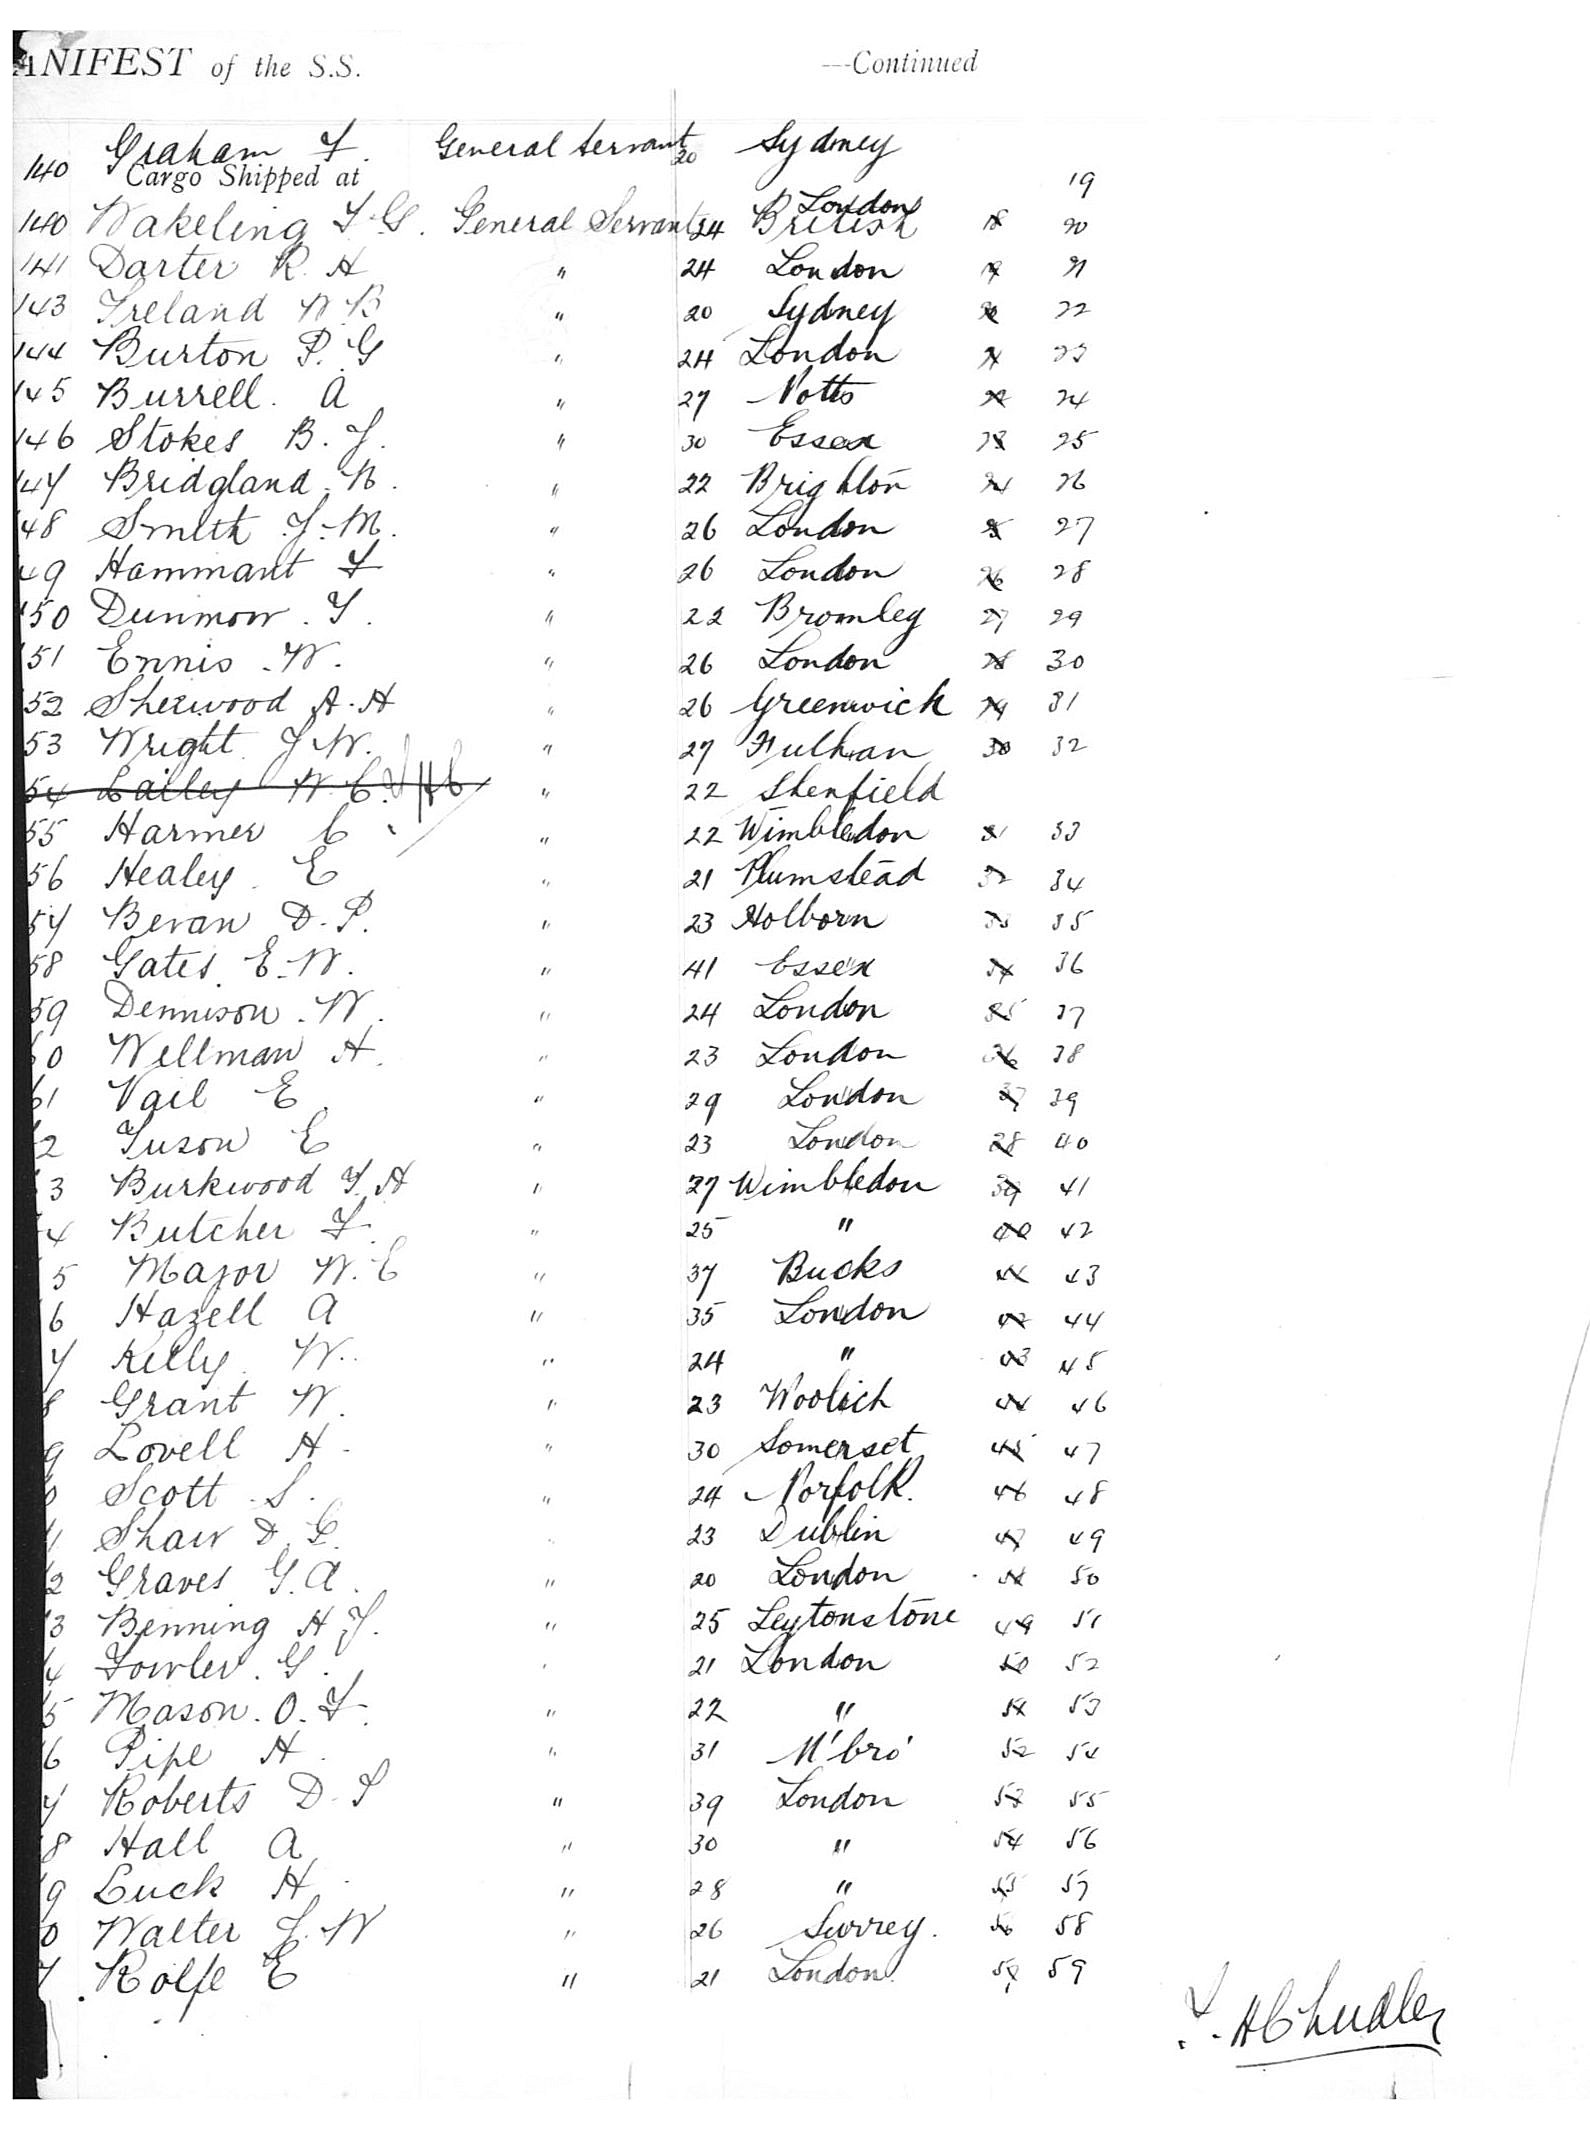 ANIFEST of the S.S. ---Continued
140 Graham F. General Servant 20 Sydney
Cargo Shipped at 19
London
140 Wakeling F G. General Servant 24 British 18 20
141 Darter R. H " 24 London 19 21
143 Ireland W B " 20 Sydney 20 22
144 Burton P. G " 24 London 21 23
145 Burrell. A " 27 Notts 22 24
146 Stokes B. J. " 30 Essex 23 25
147 Bridgland. W. " 22 Brighton 24 26
48 Smith J. M. " 26 London 25 27
49 Hammant F " 26 London 26 28
150 Dunmow. T. " 22 Bromley 27 29
51 Ennis. W. " 26 London 28 30
52 Sherwood A. H " 26 Greenwich 29 31
53 Wright J. W. " 27 Fulhan 30 32
54 Lailey W. C. " 22 Shenfield
55 Harmer C " 22 Wimbledon 31 33
56 Healey. E " 21 Plumstead 32 34
57 Bevan D. P. " 23 Holborn 33 35
58 Gates. E. W. " 41 Essex 34 36
59 Dennison. W. " 24 London 35 37
60 Wellman H. " 23 London 36 38
61 Vail E. " 29 London 37 39
2 Tuson E " 23 London 38 40
3 Burkwood T. H " 27 Wimbledon 39 41
4 Butcher F. " 25 " 40 42
5 Major W. E " 37 Bucks 41 43
6 Hazell A " 35 London 42 44
7 Kelly. W. " 24 " 43 45
8 Grant W. " 23 Woolich 44 46
9 Lovell H. " 30 Somerset 45 47
0 Scott. S. " 24 Norfolk. 46 48
1 Shaw D. " 23 Dublin 47 49
2 Graves G. A. " 20 London 48 50
3 Benning H J. " 25 Leytonstone 49 51
4 Fowler. G. " 21 London 50 52
5 Mason. O. F. " 22 " 51 53
6 Pipe H. " 31 M'bro' 52 54
7 Roberts D. S " 39 London 53 55
8 Hall A " 30 " 54 56
9 Luck H. " 28 " 55 57
0 Walter J. W " 26 Surrey. 56 58
Rolfe E " 21 London. 59